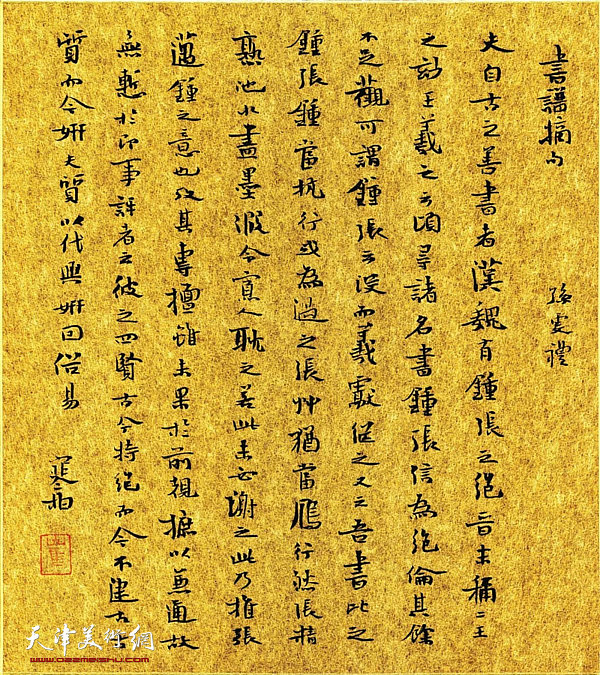 書譜摘句 孫虔禮
夫自古之善書者漢魏有鍾張之絕晉末稱二王
之妙王羲之云頃尋諸名書鍾張信為絕倫其餘
不足觀可謂鍾張云沒而羲獻繼之又云吾書比之
鍾張鍾當抗行或為過之張艸猶當鴈行然張精
熟池水盡墨假令寡人耽之若此未必謝之此乃推張
邁鍾之意也考其專擅雖未果於前規摭以兼通故
無慙於即事評者云彼之四賢古今特絕而今不逮古古
質而今妍夫質以代興妍因俗易
天津美術網
www.022meishu.com